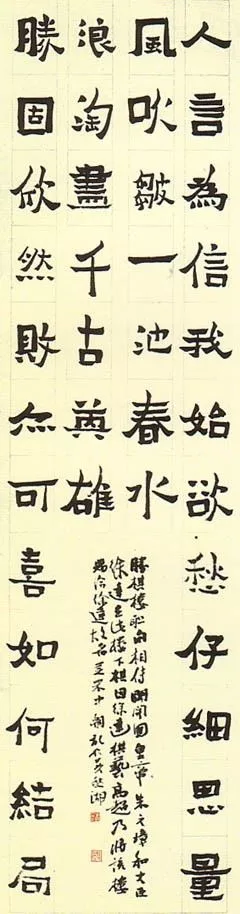 人言為信我始欲愁仔細思量
風吹皺一池春水
浪淘盡千古英雄
勝固欣然敗亦可喜如何結局
勝棋樓相傳明開國皇帝朱元璋和大臣
徐達在此樓下棋因徐達棋藝高超乃將該樓
賜給徐達故名